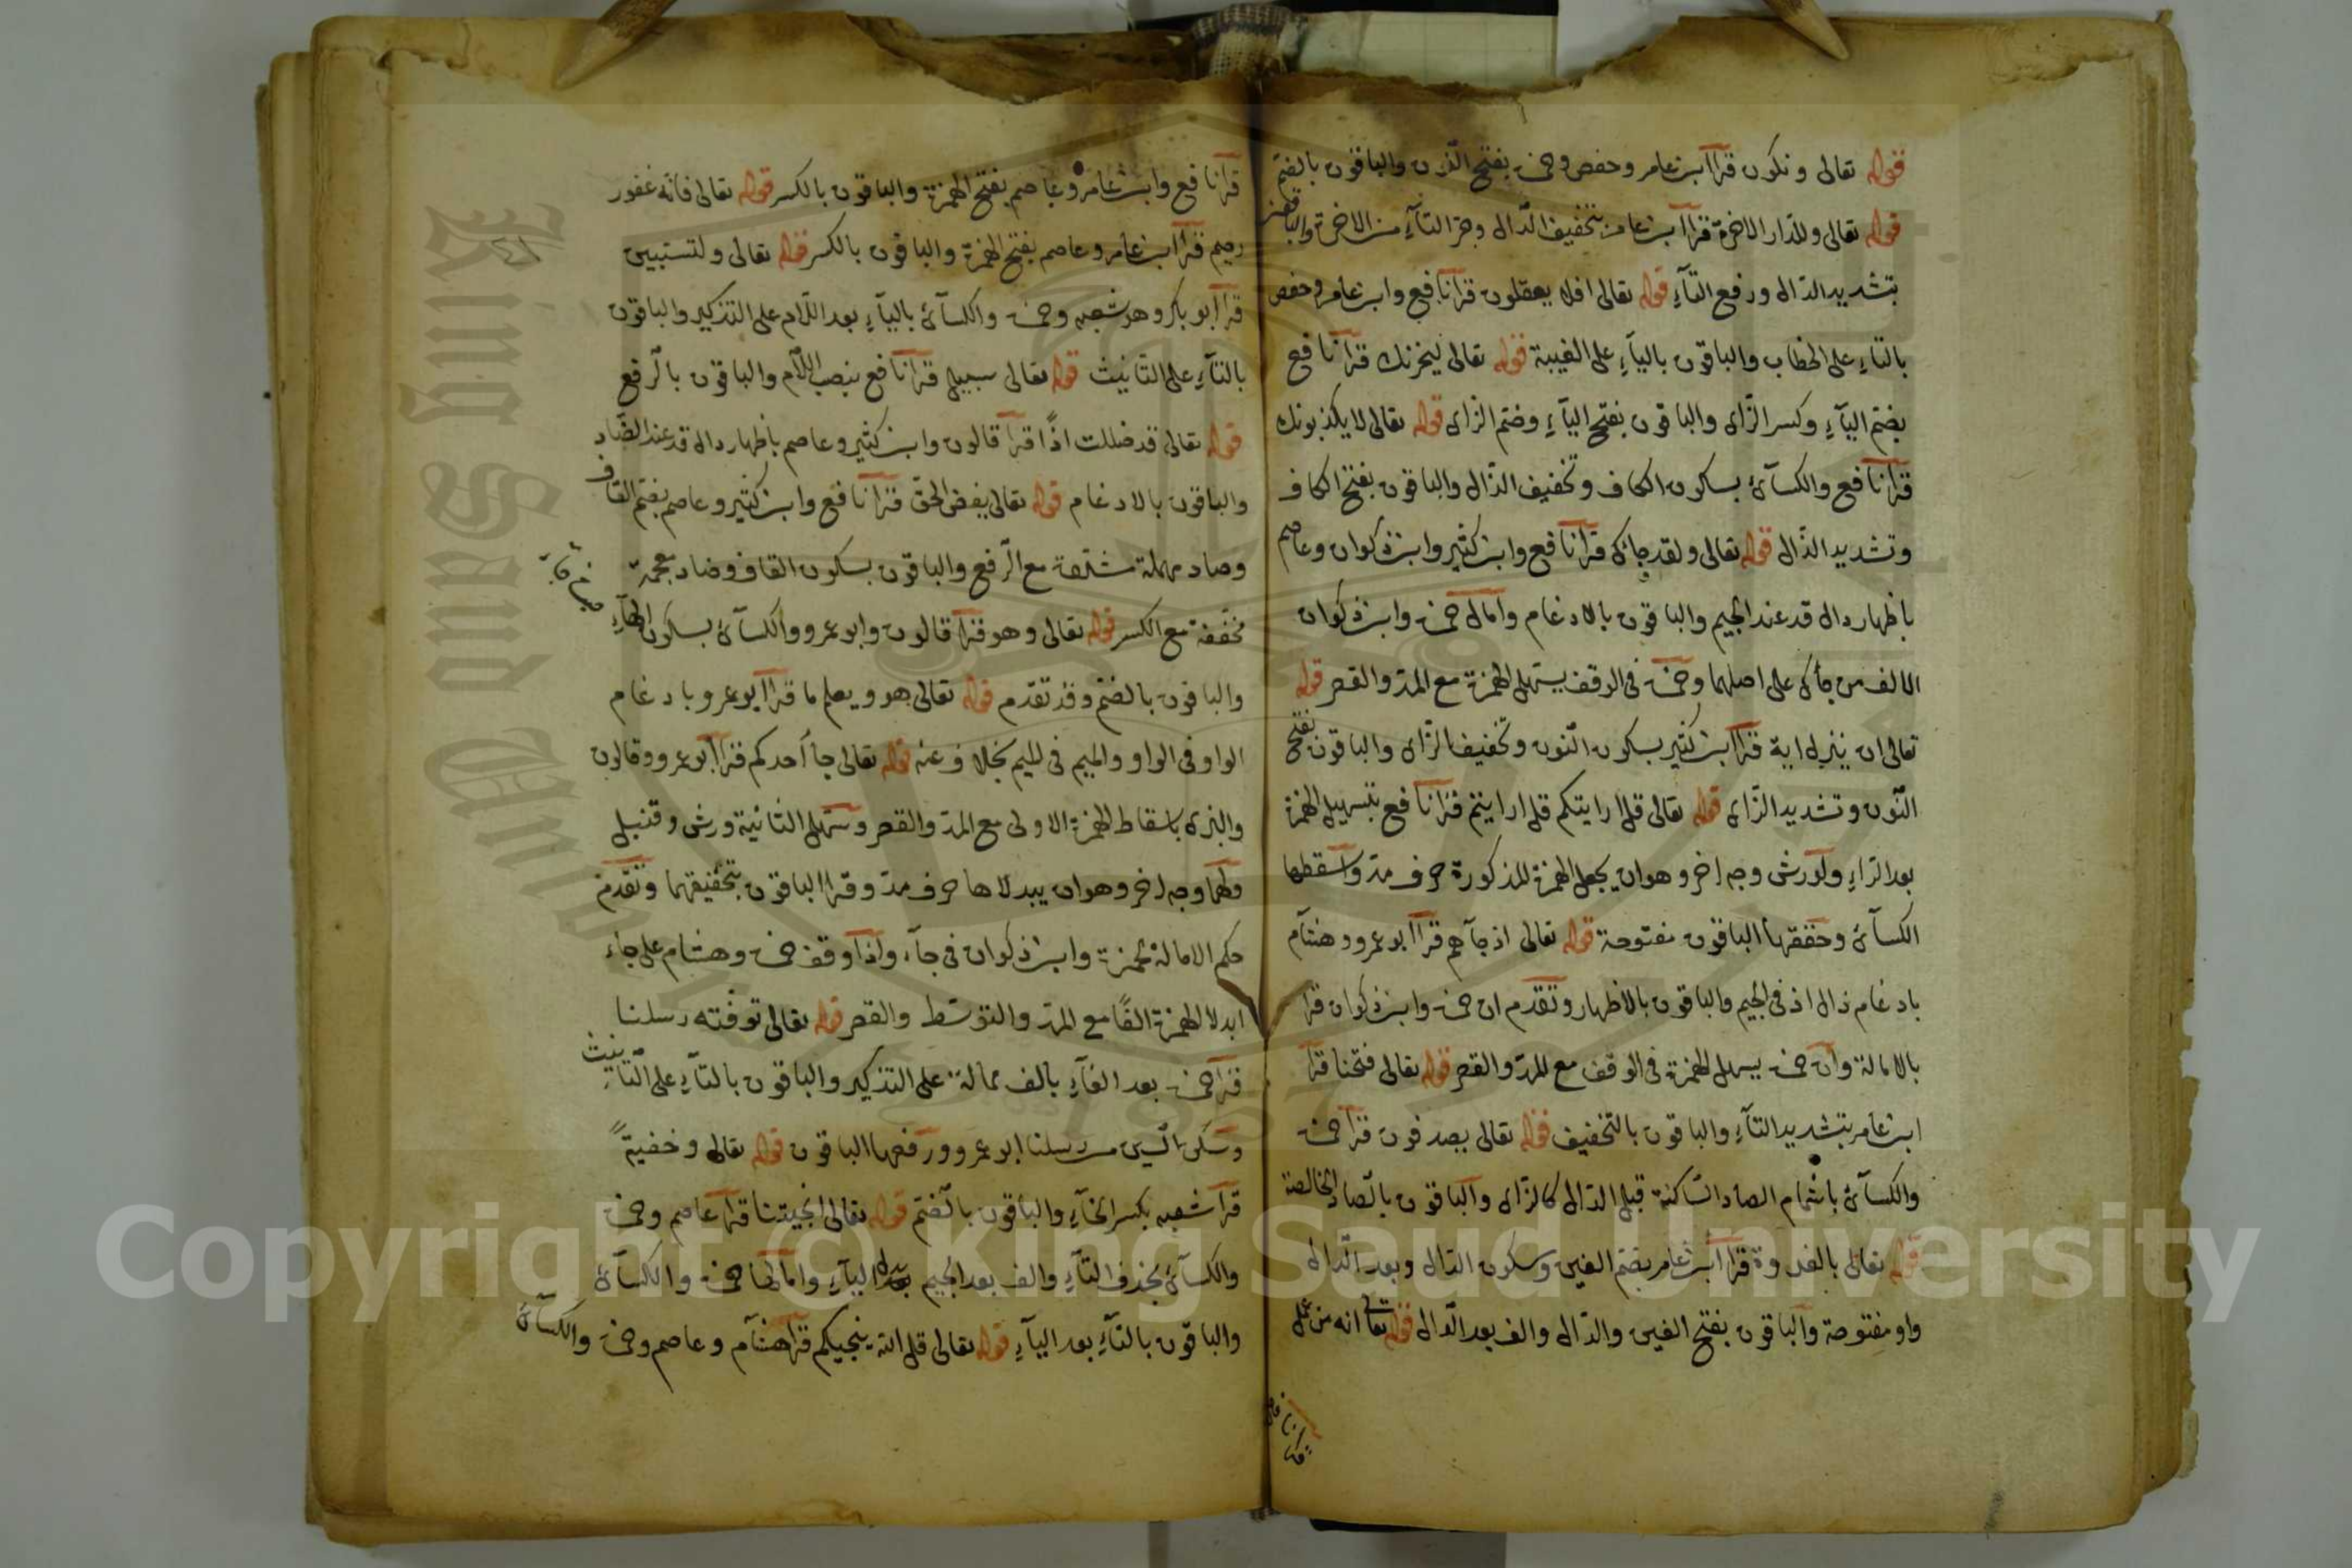 قوله تعالى ونكون قرا ابن عامر وحفص وحمزة بفتح النون والباقون بالضم
قوله تعالى وللدار الاخرة قرا ابن عامر بتخفيف الدال وجر التاء من الاخرة والباقون
بتشديد الدال ورفع التاء قوله تعالى افلا يعقلون قرا نافع وابن عامر وحفص
بالتاء على الخطاب والباقون بالياء على الغيبة قوله تعالى ليحزنك قرا نافع
بضم الياء وكسر الزاى والباقون بفتح الياء وضم الزاى قوله تعالى لا يكذبونك
قرا نافع والكسائى بسكون الكاف وتخفيف الذال والباقون بفتح الكاف
وتشديد الذال قوله تعالى ولقد جاءك قرا نافع وابن كثير وابن ذكوان وعاصم
باظهار دال قد عند الجيم والباقون بالادغام وامال حمزة وابن ذكوان
الالف من جاءك على اصلهما وحمزة فى الوقف يسهل الهمزة مع المد والقصر قوله
تعالى ان ينزل اية قرا ابن كثير بسكون النون وتخفيف الزاى والباقون بفتح
النون وتشديد الزاى قوله تعالى قل ارايتكم قل ارايتم قرا نافع بتسهيل الهمزة
بعد الراء ولورش وجه اخر وهو ان يجعل الهمزة المذكورة حرف مد واسقطها
الكسائى وحققها الباقون مفتوحة قوله تعالى اذ جاءهم قرا ابو عمرو وهشام
بادغام ذال اذ فى الجيم والباقون بالاظهار وتقدم ان حمزة وابن ذكوان قرا
بالامالة وان حمزة يسهل الهمزة فى الوقف مع المد والقصر قوله تعالى فتحنا قرا
ابن عامر بتشديد التاء والباقون بالتخفيف قوله تعالى يصدفون قرا حمزة
والكسائى باشمام الصاد الساكنة قبل الدال كالزاى والباقون بالصاد الخالصة
قوله تعالى بالغدوة قرا ابن عامر بضم الغين وسكون الدال وبعد الدال
واو مفتوحة والباقون بفتح الغين والدال والف بعد الدال قوله تعالى انه من عمل
قرا نافع
قرا نافع وابن عامر وعاصم بفتح الهمزة والباقون بالكسر قوله تعالى فانه غفور
رحيم قرا ابن عامر وعاصم بفتح الهمزة والباقون بالكسر قوله تعالى ولتستبين
قرا ابو بكر وهو شعبه وحمزة والكسائى بالياء بعد اللام على التذكير والباقون
بالتاء على التانيث قوله تعالى سبيل قرا نافع بنصب اللام والباقون بالرفع
قوله تعالى قد ضللت اذا قرا قالون وابن كثير وعاصم باظهار دال قد عند الضاد
والباقون بالادغام قوله تعالى يقض الحق قرا نافع وابن كثير وعاصم بضم القاف
وصاد مهملة مشددة مع الرفع والباقون بسكون القاف وضاد معجمة
مخففة مع الكسر قوله تعالى وهو قرا قالون وابو عمرو والكسائى بسكون الهاء
والباقون بالضم وقد تقدم قوله تعالى هو ويعلم ما قرا ابو عمرو بادغام
الواو فى الواو والميم فى الميم بخلاف عنه قوله تعالى جاء احدكم قرا ابو عمرو وقالون
والبزى باسقاط الهمزة الاولى مع المد والقصر وسهل الثانية ورش وقنبل
ولهما وجه اخر وهو ان يبدلاها حرف مد وقرا الباقون بتحقيقهما وتقدم
حكم الامالة لحمزة وابن ذكوان فى جاء واذا وقف حمزة وهشام على جاء
ابدلا الهمزة الفا مع المد والتوسط والقصر قوله تعالى توفته رسلنا
قرا حمزة بعد الفاء بالف ممالة على التذكير والباقون بالتاء على التانيث
وسكن السين من رسلنا ابو عمرو ورفعها الباقون قوله تعالى وخفية
قرا شعبه بكسر الخاء والباقون بالضم قوله تعالى انجيتنا قرا عاصم وحمزة
والكسائى بحذف التاء والف بعد الجيم بدل الياء وامالها حمزة والكسائى
والباقون بالتاء بعد الياء قوله تعالى قل الله ينجيكم قرا هشام وعاصم وحمزة والكسائى
Copyright © King Saud University